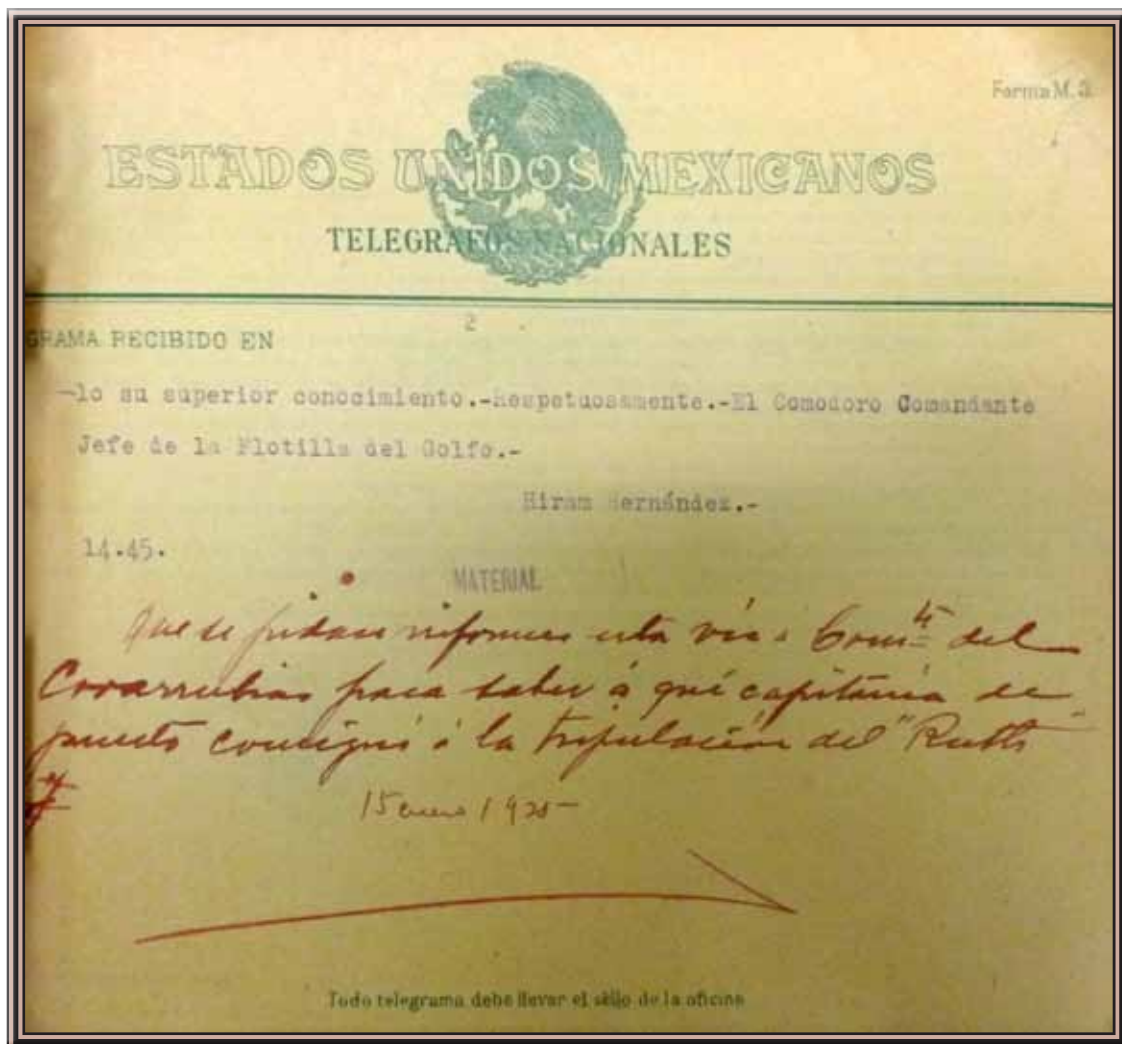 Forma M. 3.
ESTADOS UNIDOS MEXICANOS
TELEGRAFOS NACIONALES
2
GRAMA RECIBIDO EN
-lo su superior conocimiento.-Respetuosamente.-El Comodoro Comandante
Jefe de la Flotilla del Golfo.-
Hiram Hernández.-
14.45.
MATERIAL
Que se pidan informes esta vía a Com.te del
Covarrubias para saber á qué capitanía de
puerto consignó á la tripulación del "Ruth"
15 enero 1925-
Todo telegrama debe llevar el sello de la oficina